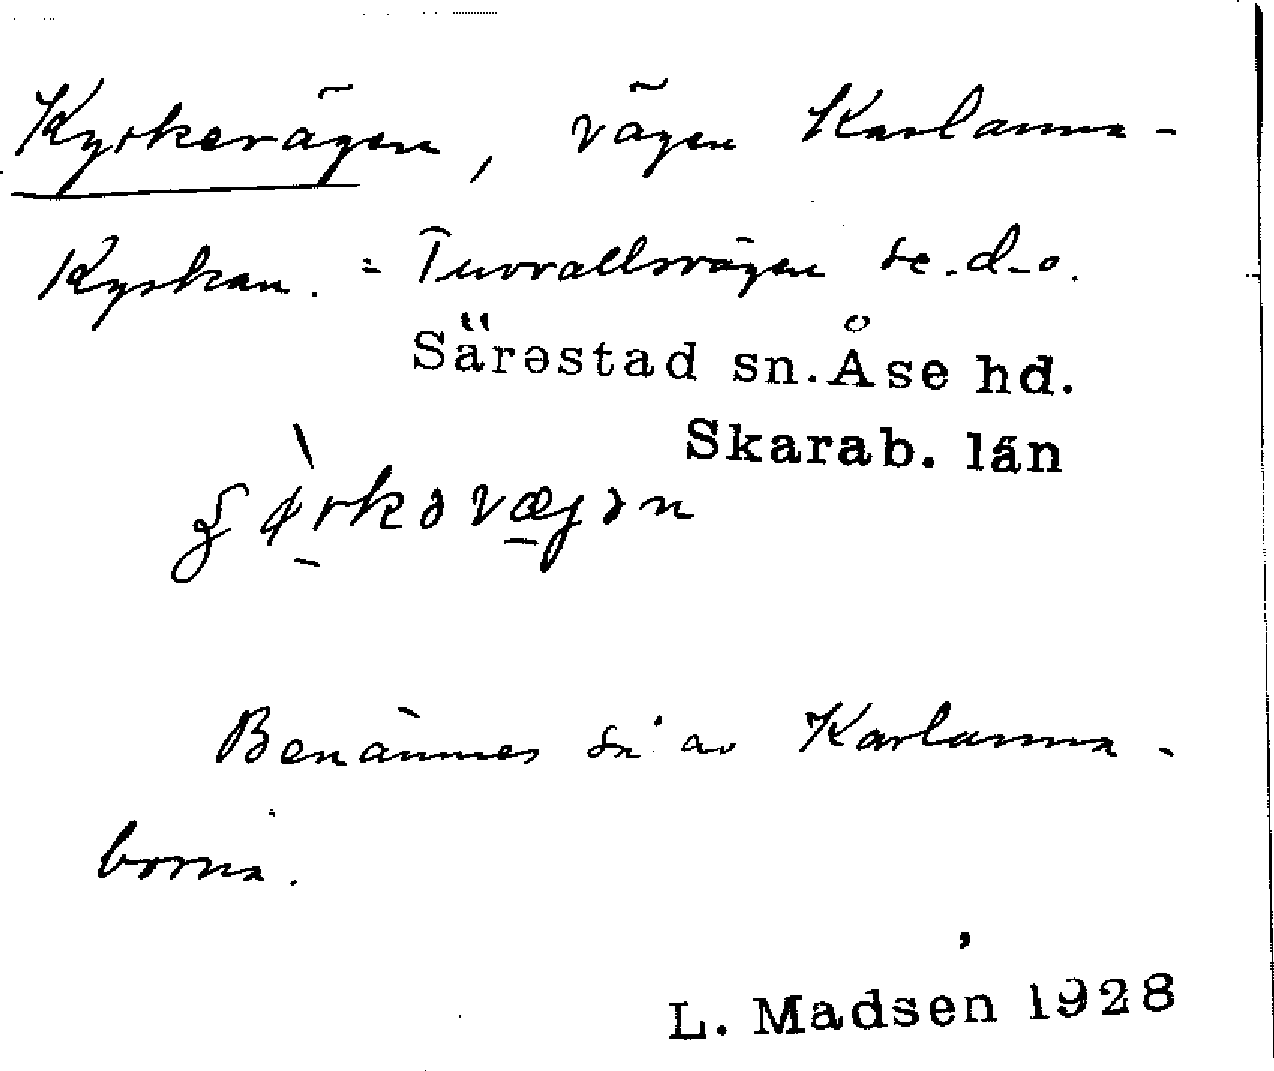 Kyrkevägen, vägen Karlanna-
Kyrkan. = Tuvvallsvägen se.d-o.
Särestad sn. Åse hd.
Skarab. län
Benämnes så av Karlanna-
borna.
L. Madsen 1928